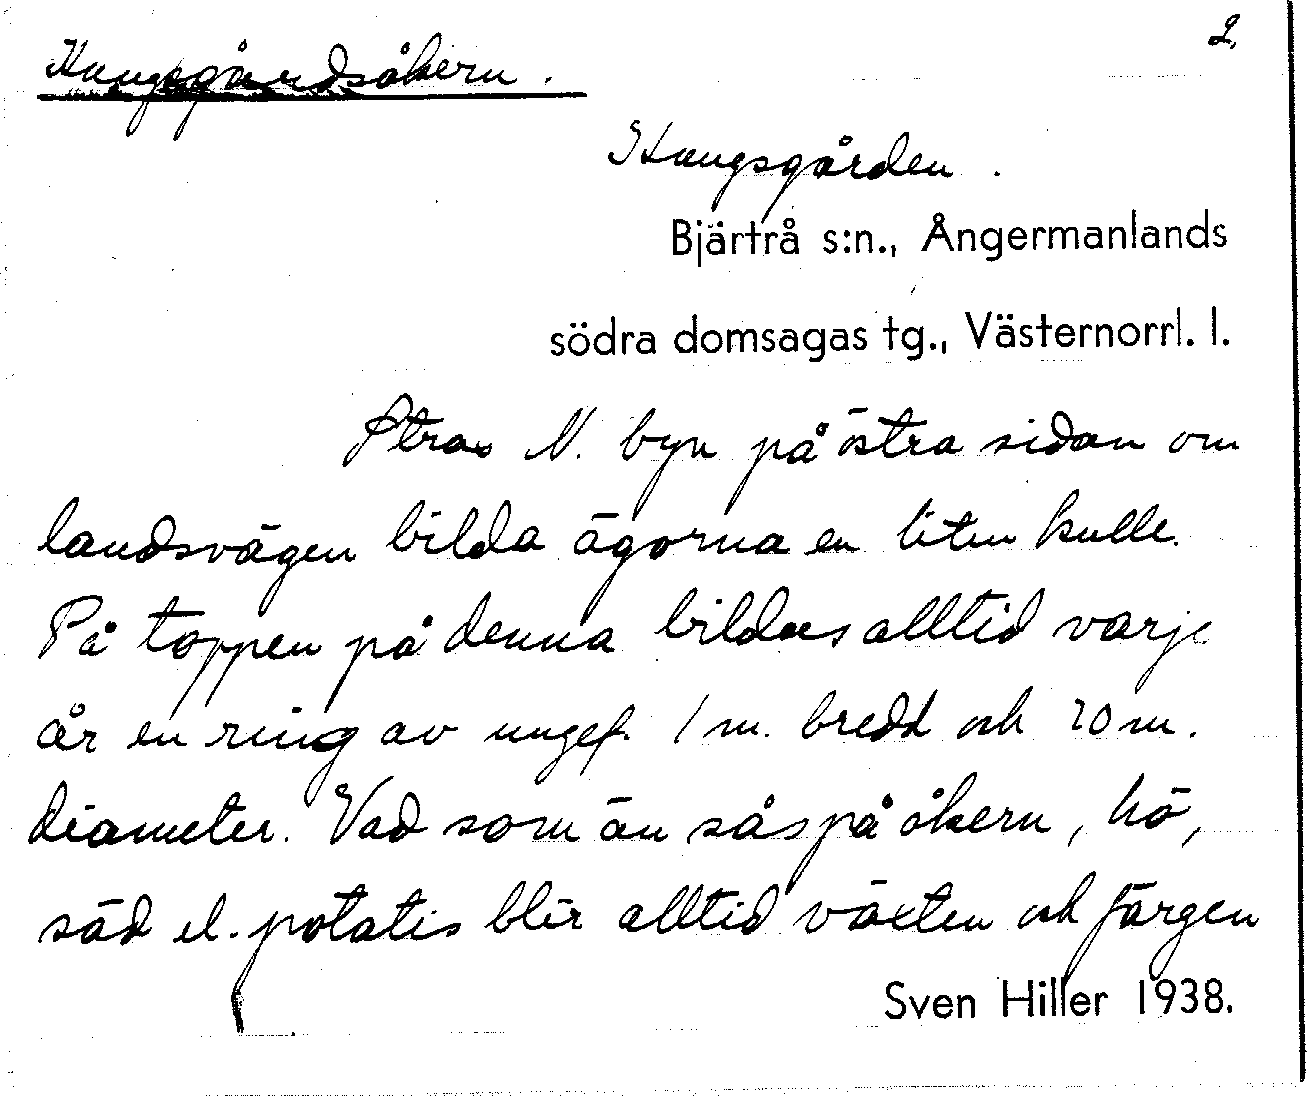 2.
Kungsgårdsåkern.
Kungsgården.
Bjärtrå s:n., Ångermanlands
södra domsagas tg., Västernorrl. l.
Strax N. byn på östra sidan om
landsvägen bilda ägorna en liten kulle.
På toppen på denna bildas alltid varje
år en ring av ungef. 1 m. bredd och 20 m.
diameter. Vad som än sås på åkern, hö,
säd el. potatis blir alltid växten och färgen
Sven Hiller 1938.